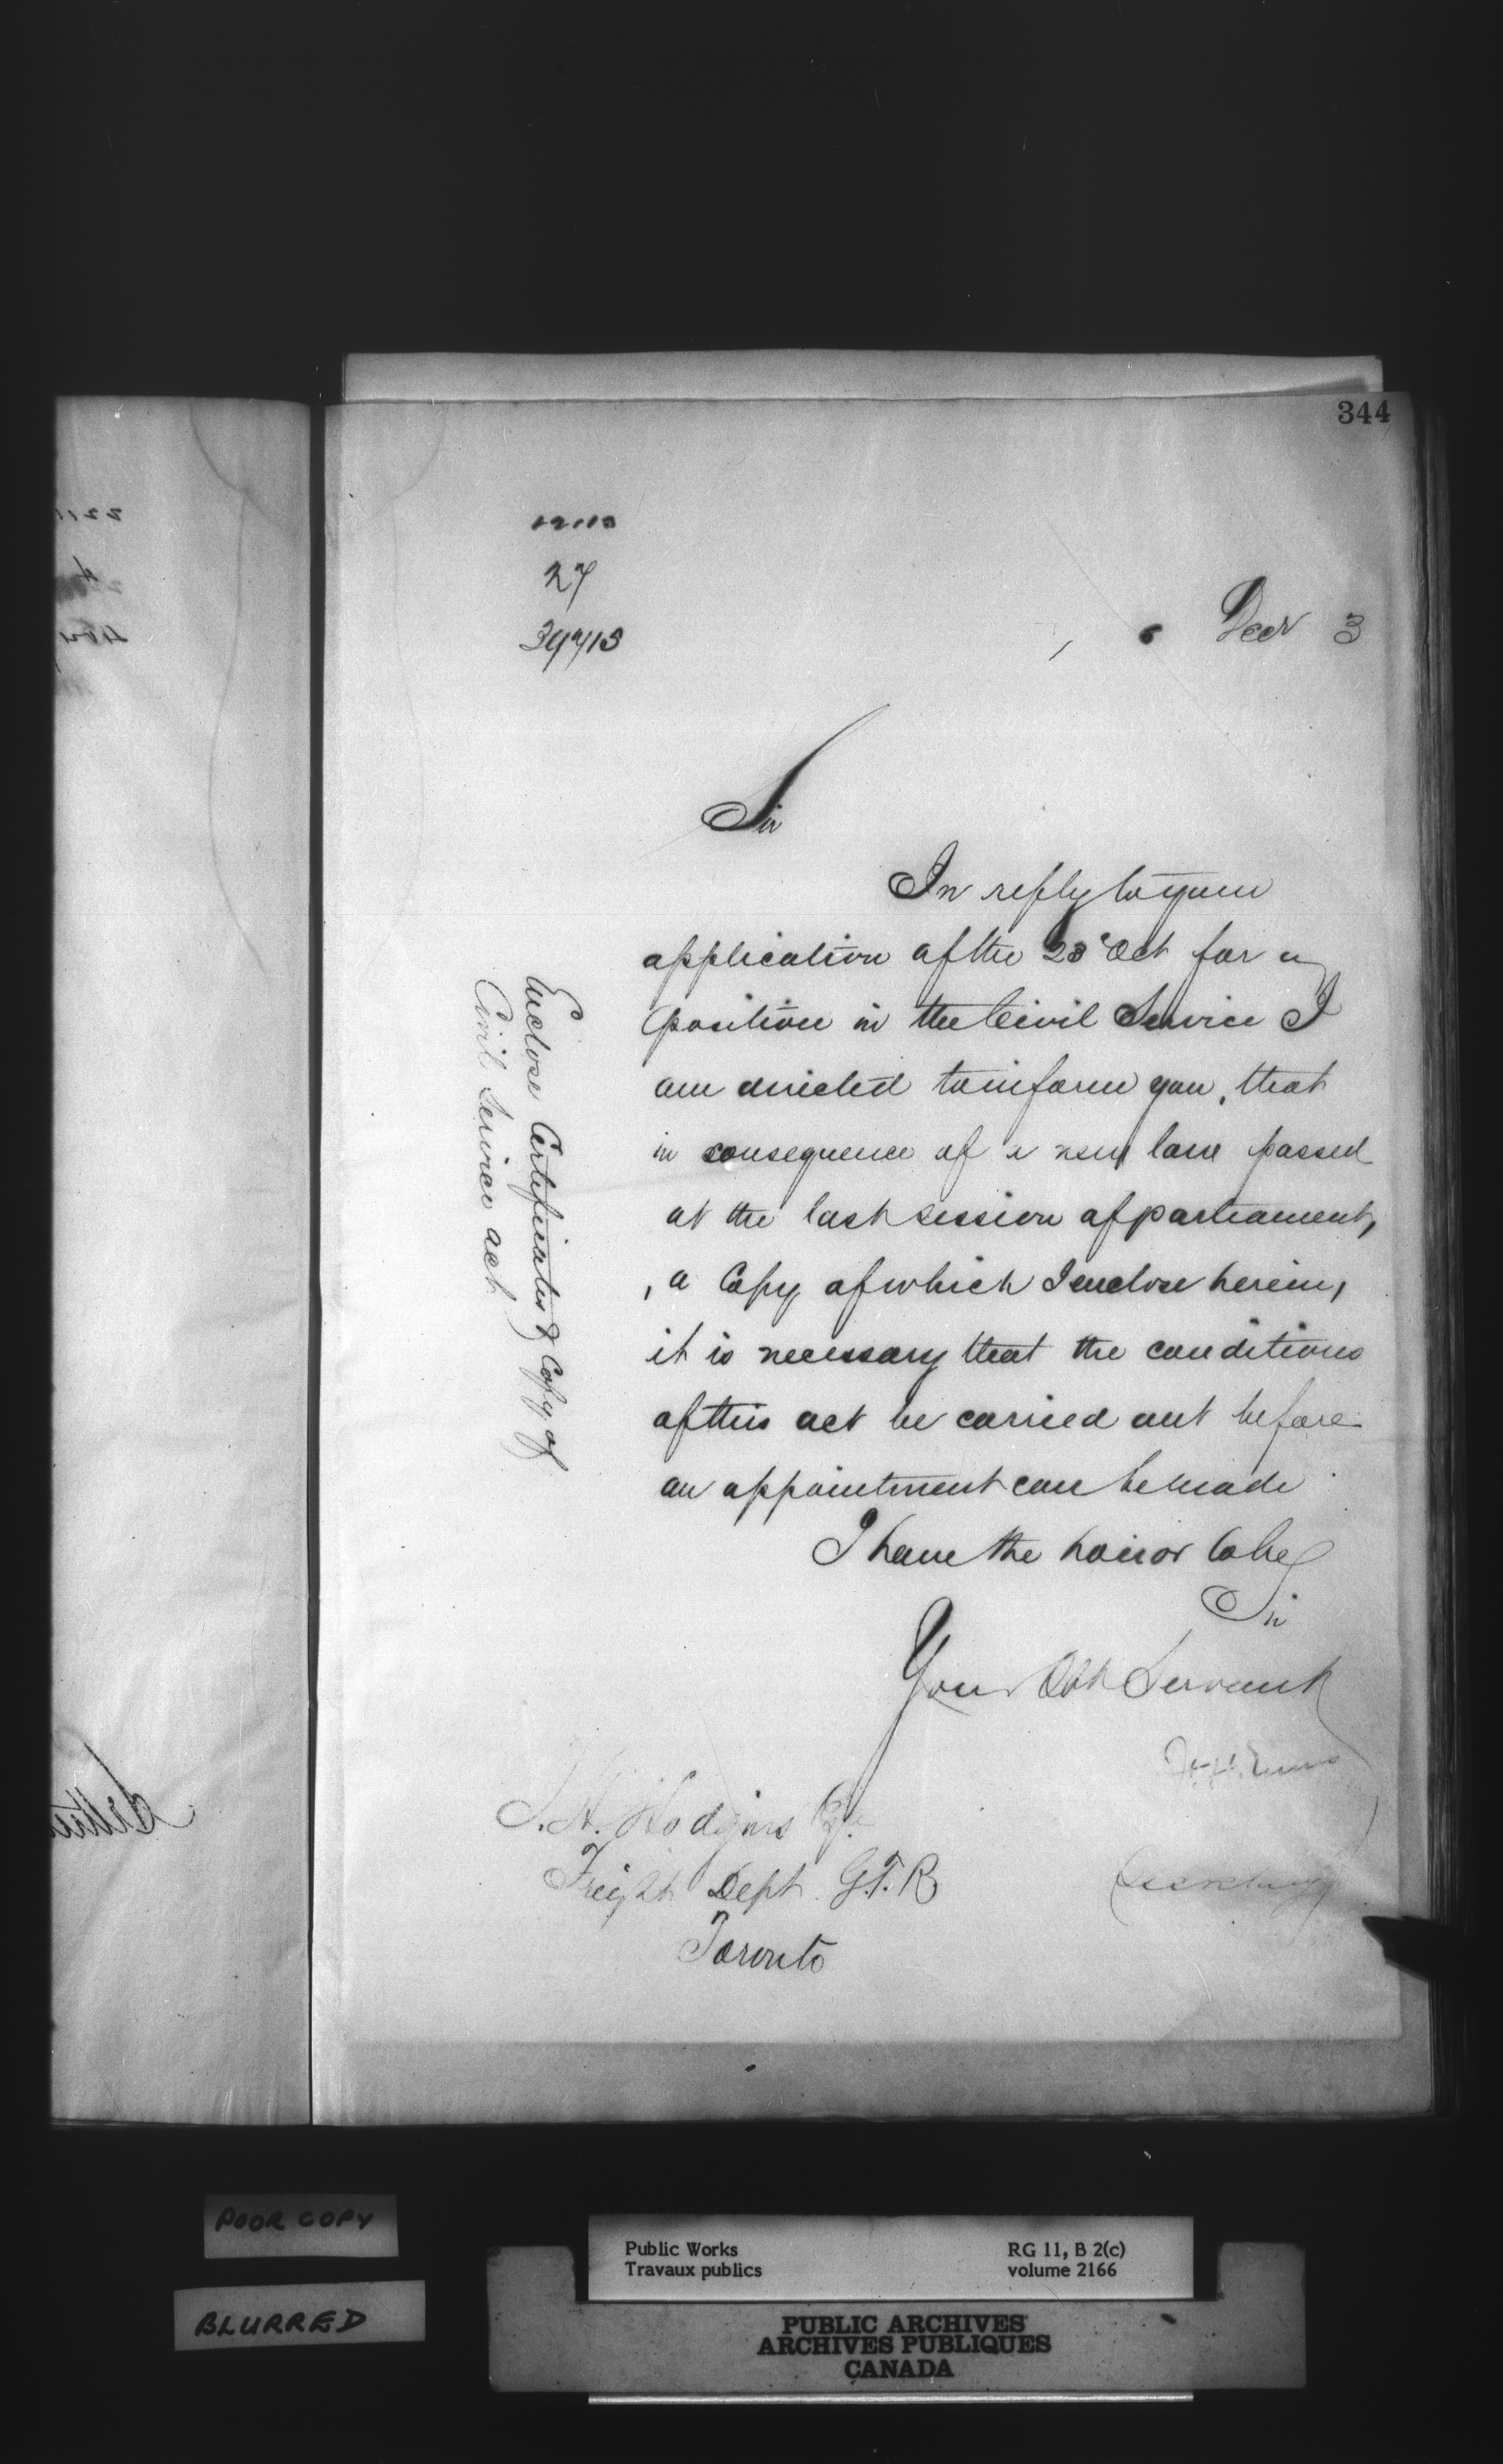 344
27
39715
Decr 3
Sir
In reply to your
application of the 23 Oct for a
position in the Civil Service I
am directed to inform you, that
in consequence of a new law passed
at the last session of parliament,
, a Copy of which I enclose herein,
it is necessary that the conditions
of this act be carried out before
an appointment can be made
I have the honor to be
Sir
Your Obt Servant
Secretary
Hodgins Esq.
Freight Dept. G.T.R
Toronto
Enclose Certificates & Copy of
Civil Service act
POOR COPY
BLURRED
Public Works
Travaux publics
RG 11, B 2(c)
volume 2166
PUBLIC ARCHIVES
ARCHIVES PUBLIQUES
CANADA